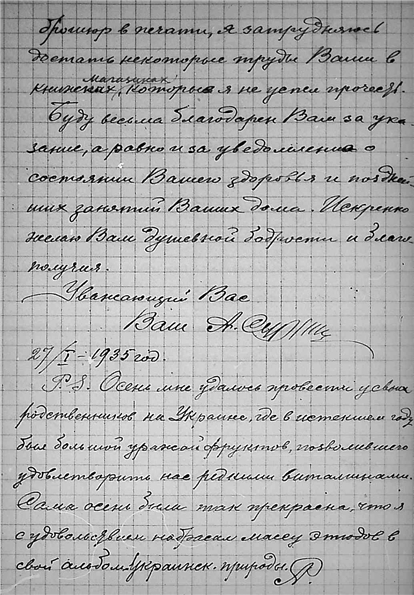 брошюр в печати, я затрудняюсь
достать некоторые труды Ваши в
магазинах
книжных, которые я не успел прочесть.
Буду весьма благодарен Вам за ука-
зание, а равно и за уведомление о
состоянии Вашего здоровья и поздней-
ших занятий Ваших дома. Искренно
желаю Вам душевной бодрости и благо-
получия.
Уважающий Вас
Ваш А.
27/I - 1935 год.
P.S. Осень мне удалось провести у своих
родственников на Украине, где в истекшем году
был большой урожай фруктов, позволившего
удовлетворить нас редкими витаминами.
Сама осень была так прекрасна, что я
с удовольствием набросал массу этюдов в
свой альбом украинск. природы.